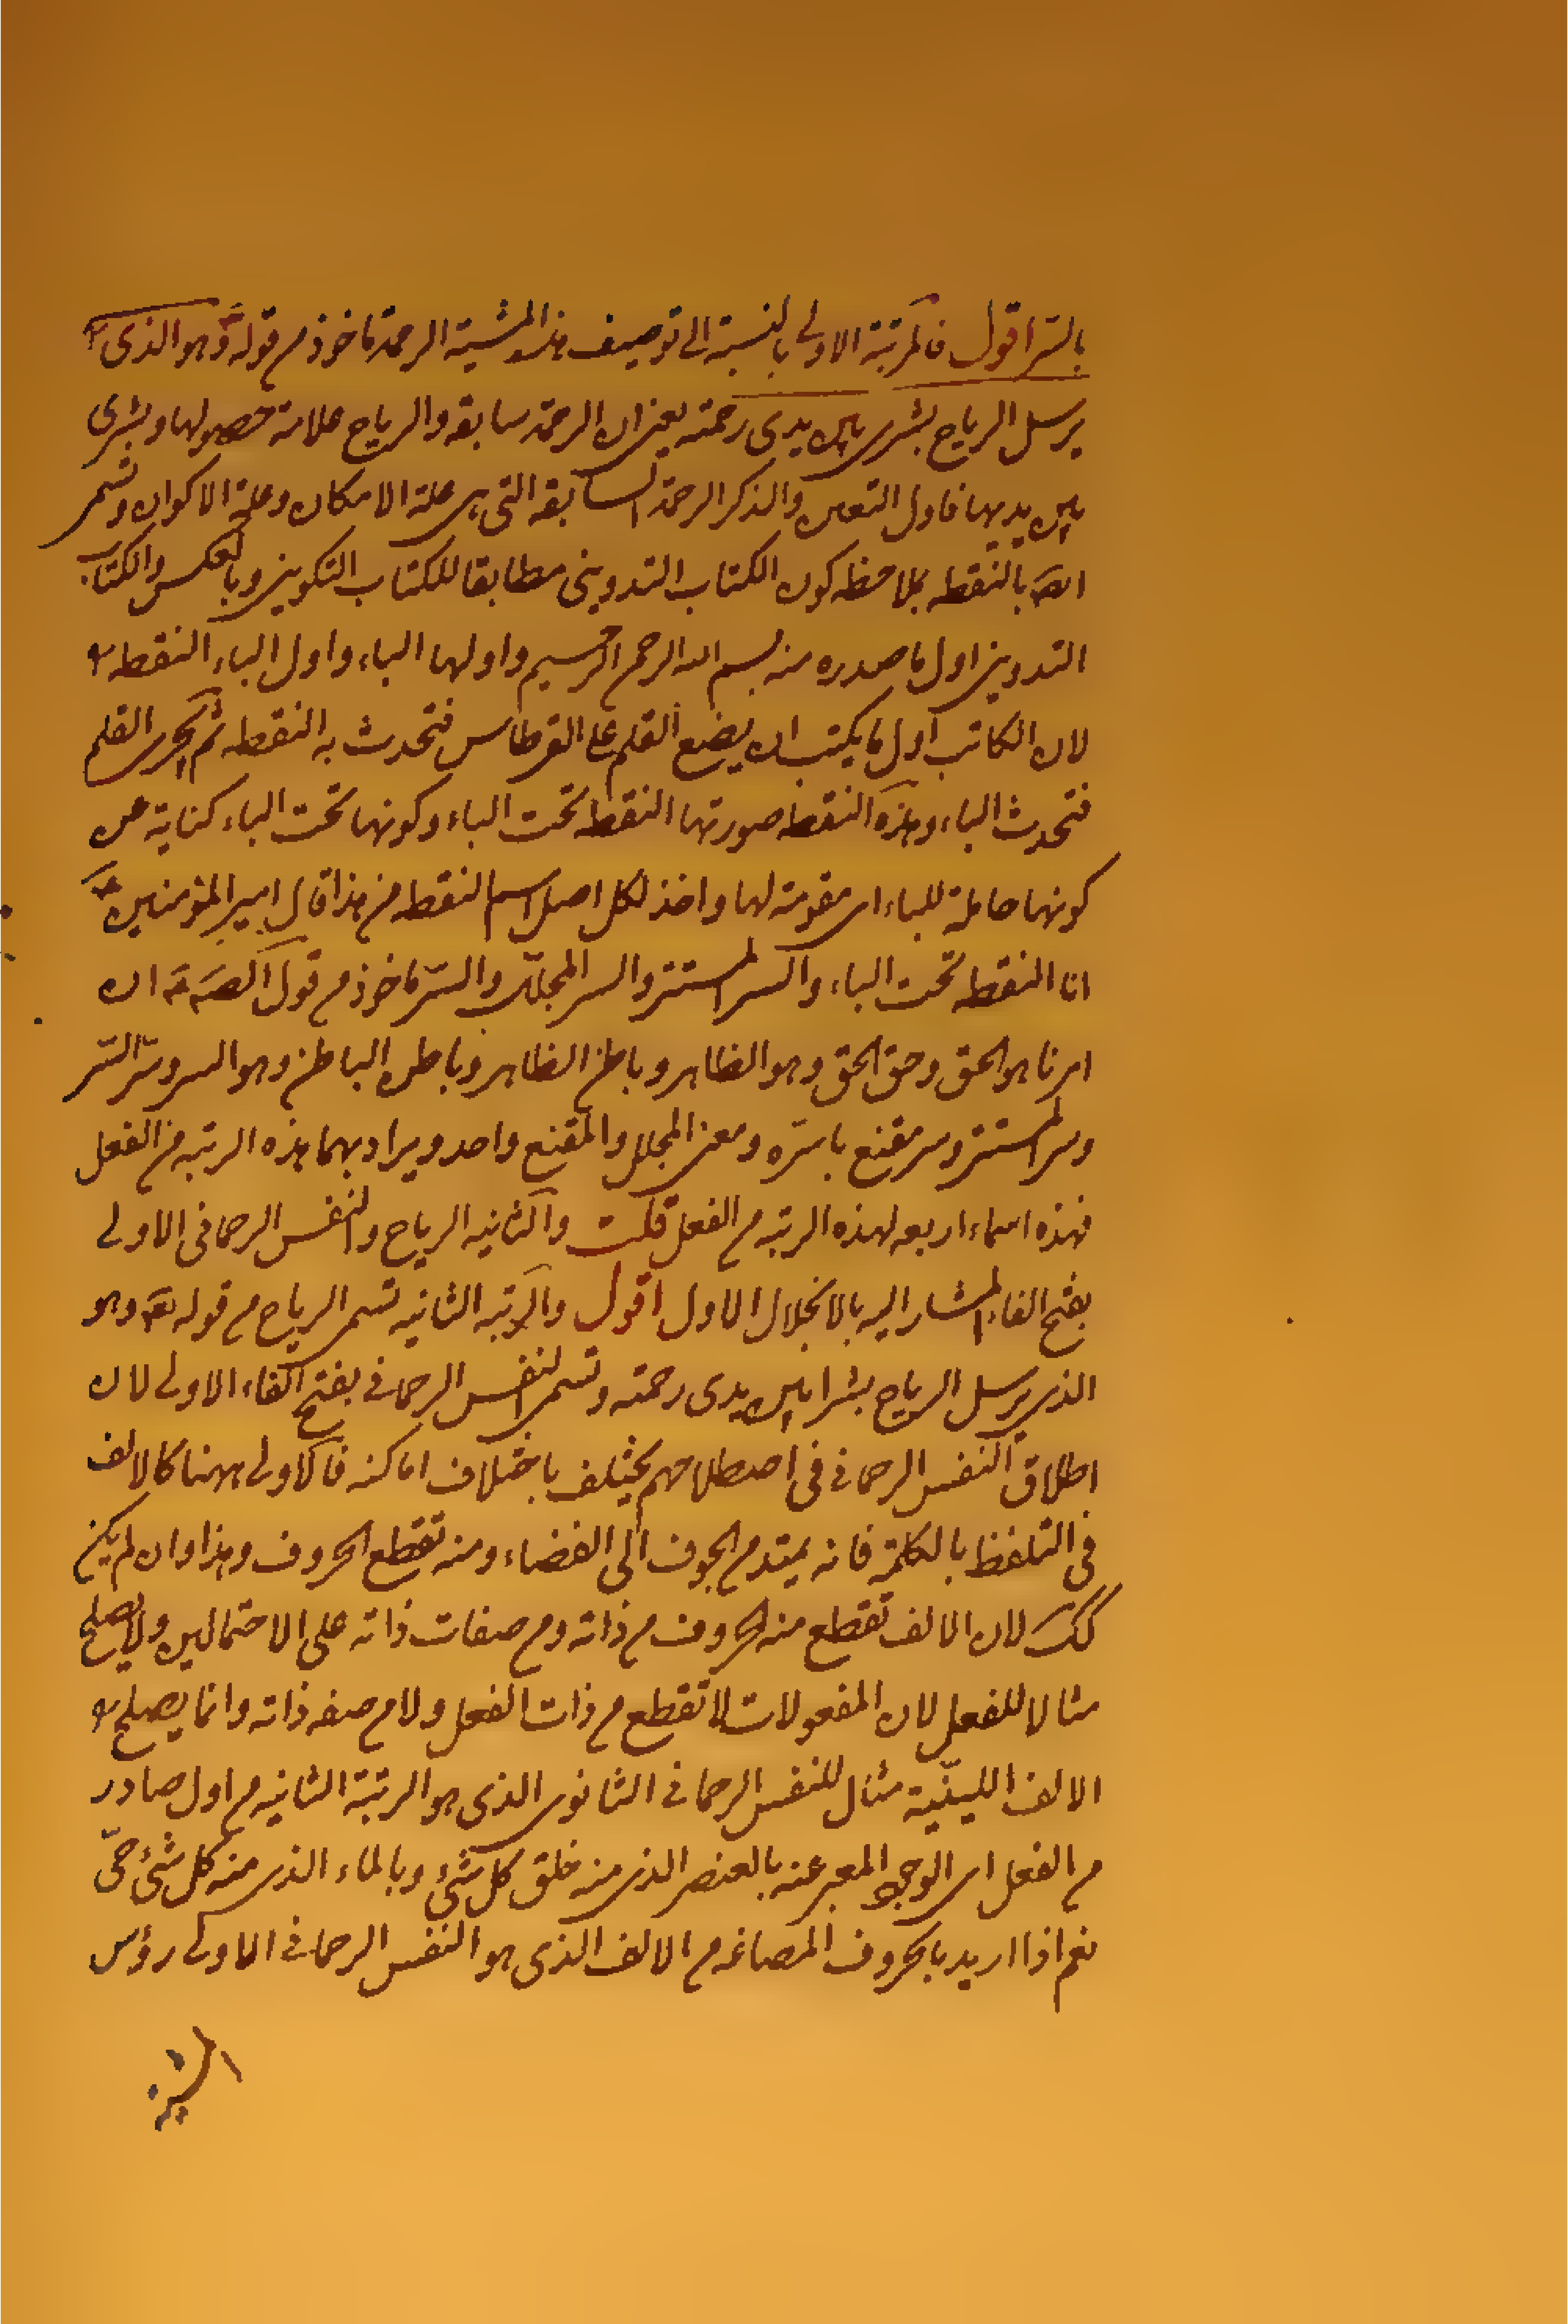 بالسّر اقول فالمرتبة الاولى بالنسبة الى توصيف هذه المشية الرحمة ماخوذ من قوله تع وهو الذى
يرسل الرياح بشرى بين يدى رحمته يعنى ان الرحمة سابقه والرياح علامة حصولها وبشرى
بين يديها فاول التعين والذكر الرحمة السابقه التى هى علة الامكان وعلة الاكوان وتسمى
ايضا بالنقطه بملاحظه كون الكتاب التدوينى مطابقا للكتاب التكوينى وبالعكس والكتاب
التدوينى اول ما صدره منه بسم الله الرحمن الرحيم واولها الباء واول الباء النقطه
لان الكاتب اول ما يكتب ان يضع القلم على القرطاس فتحدث به النقطه ثم يجرى القلم
فتحدث الباء وهذه النقطه صورتها النقطه تحت الباء وكونها تحت الباء كناية عن
كونها حاملة للباء اى مقومة لها واخذ لكل اصل اسم النقطه من هذا قال امير المؤمنين ع
انا النقطه تحت الباء والسر المستتر والسر المجلل والسّر ماخوذ من قول الص ع ان
امرنا هو الحق وحق الحق وهو الظاهر وباطن الظاهر وباطن الباطن وهو السر وسّر السّر
وسر المستتر وسر مقنع باسّره ومعنى المجلل والمقنع واحد ويراد بهما هذه الرتبه من الفعل
فهذه اسماء اربعه لهذه الرتبه من الفعل قلت والثانيه الرياح والنفس الرحمانى الاولى
بفتح الفاء المشار اليه بالانحلال الاول اقول والرتبه الثانيه تسمى الرياح من قوله تع وهو
الذى يرسل الرياح بشرا بين يدى رحمته وتسمى النفس الرحمانى بفتح الفاء الاولى لان
اطلاق النفس الرحمانى فى اصطلاحهم يختلف باختلاف اماكنه فالاولى ههنا كالالف
فى التلفظ بالكلمة فانه يمتد من الجوف الى الفضاء ومنه تقطع الحروف وهذا وان لم يكن
كك لان الالف تقطع منه الحروف من ذاته ومن صفات ذاته على الاحتمالين ولا يصلح
مثالا للفعل لان المفعولات لا تقطع من ذات الفعل ولا من صفه ذاته وانما يصلح
الالف اللينّية مثال للنفس الرحمانى الثانوى الذى هو الرتبة الثانيه من اول صادر
من الفعل اى الوجود المعبر عنه بالعنصر الذى منه خلق كل شئ وبالماء الذى منه كل شئ حىّ
نعم اذا اريد بالحروف المصاغه من الالف الذى هو النفس الرحمانى الاولى رؤس